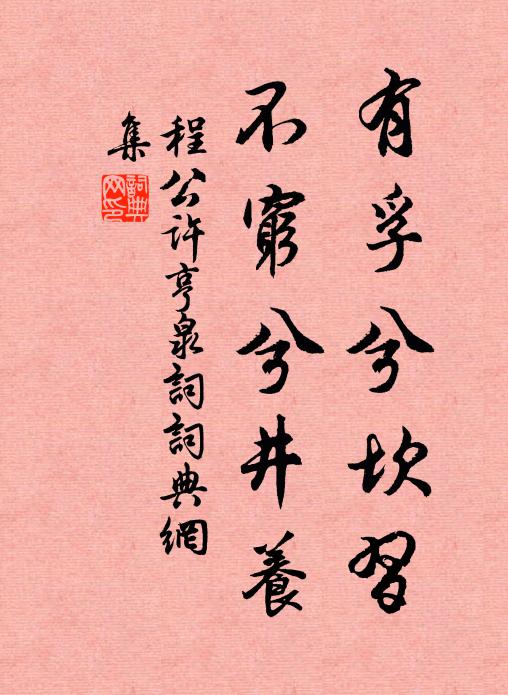 有孚兮坎習
不窮兮井養
程公許亨泉詞詞典網
集
詞典
网印